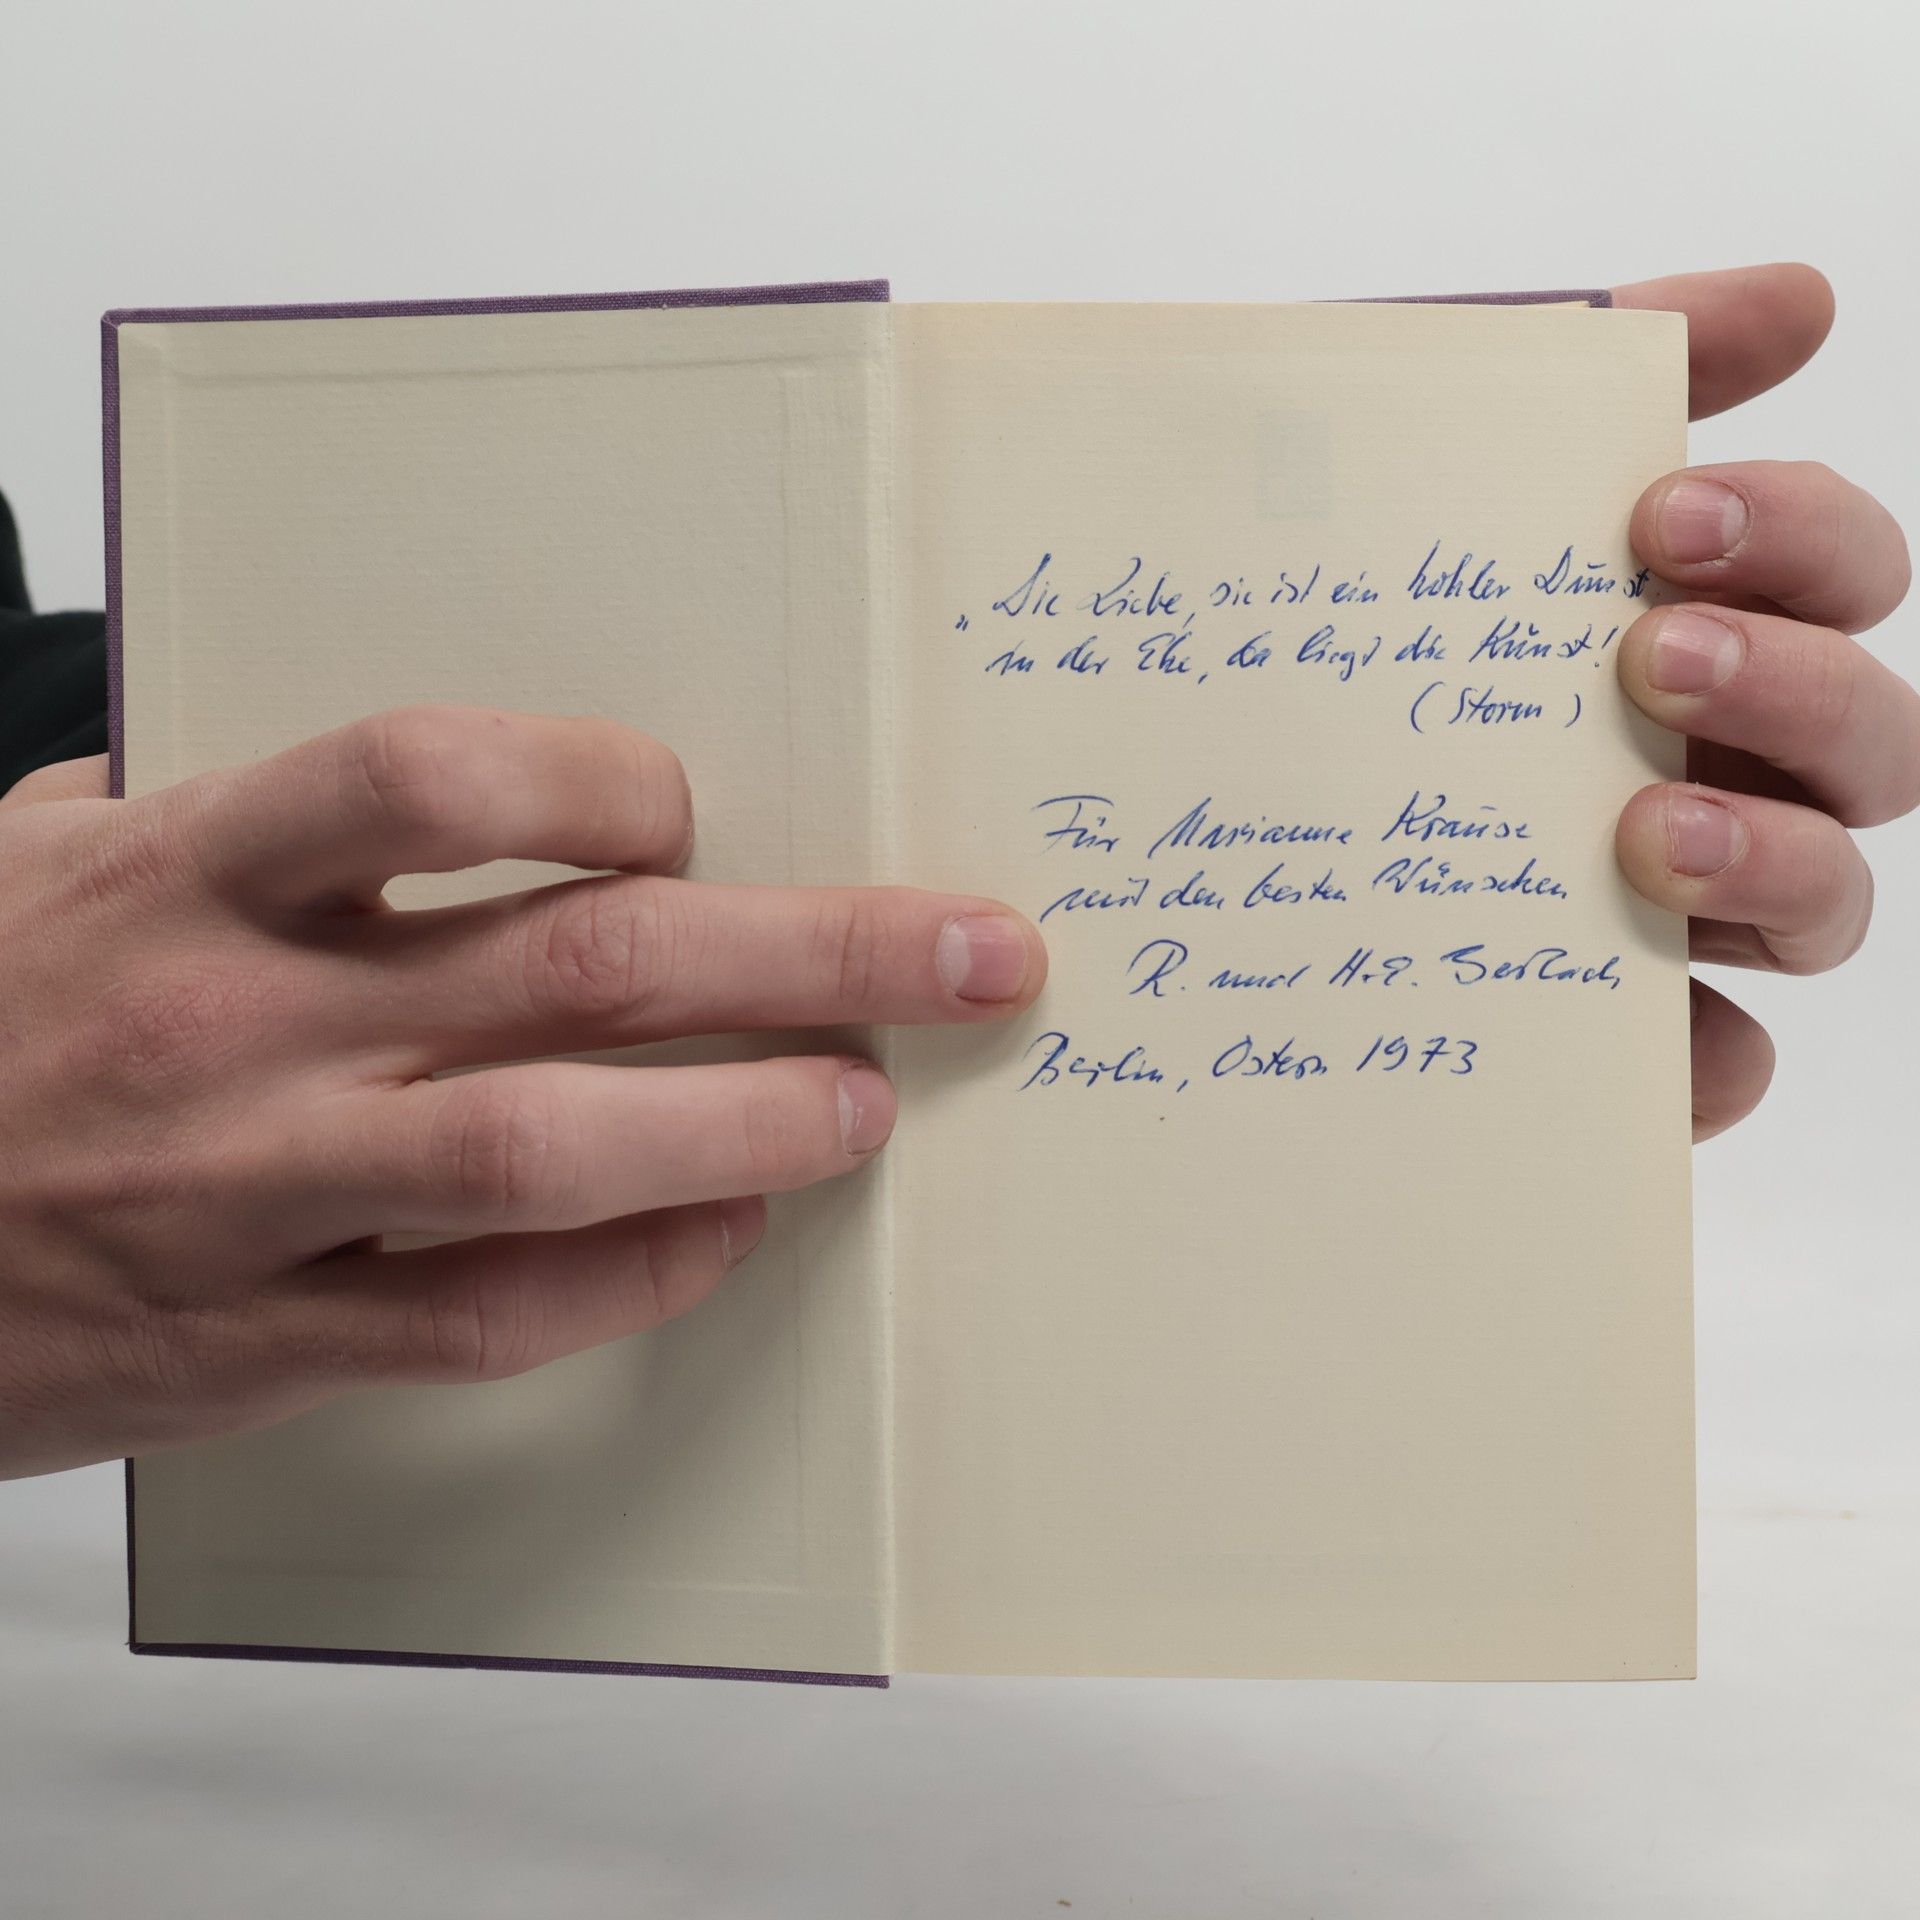 „Die Liebe, sie ist ein hohler Dunst
in der Ehe, da liegt die Kunst!
(Storm)
Für Marianne Krause
mit den besten Wünschen
R. und H.E.
Berlin, Ostern 1973